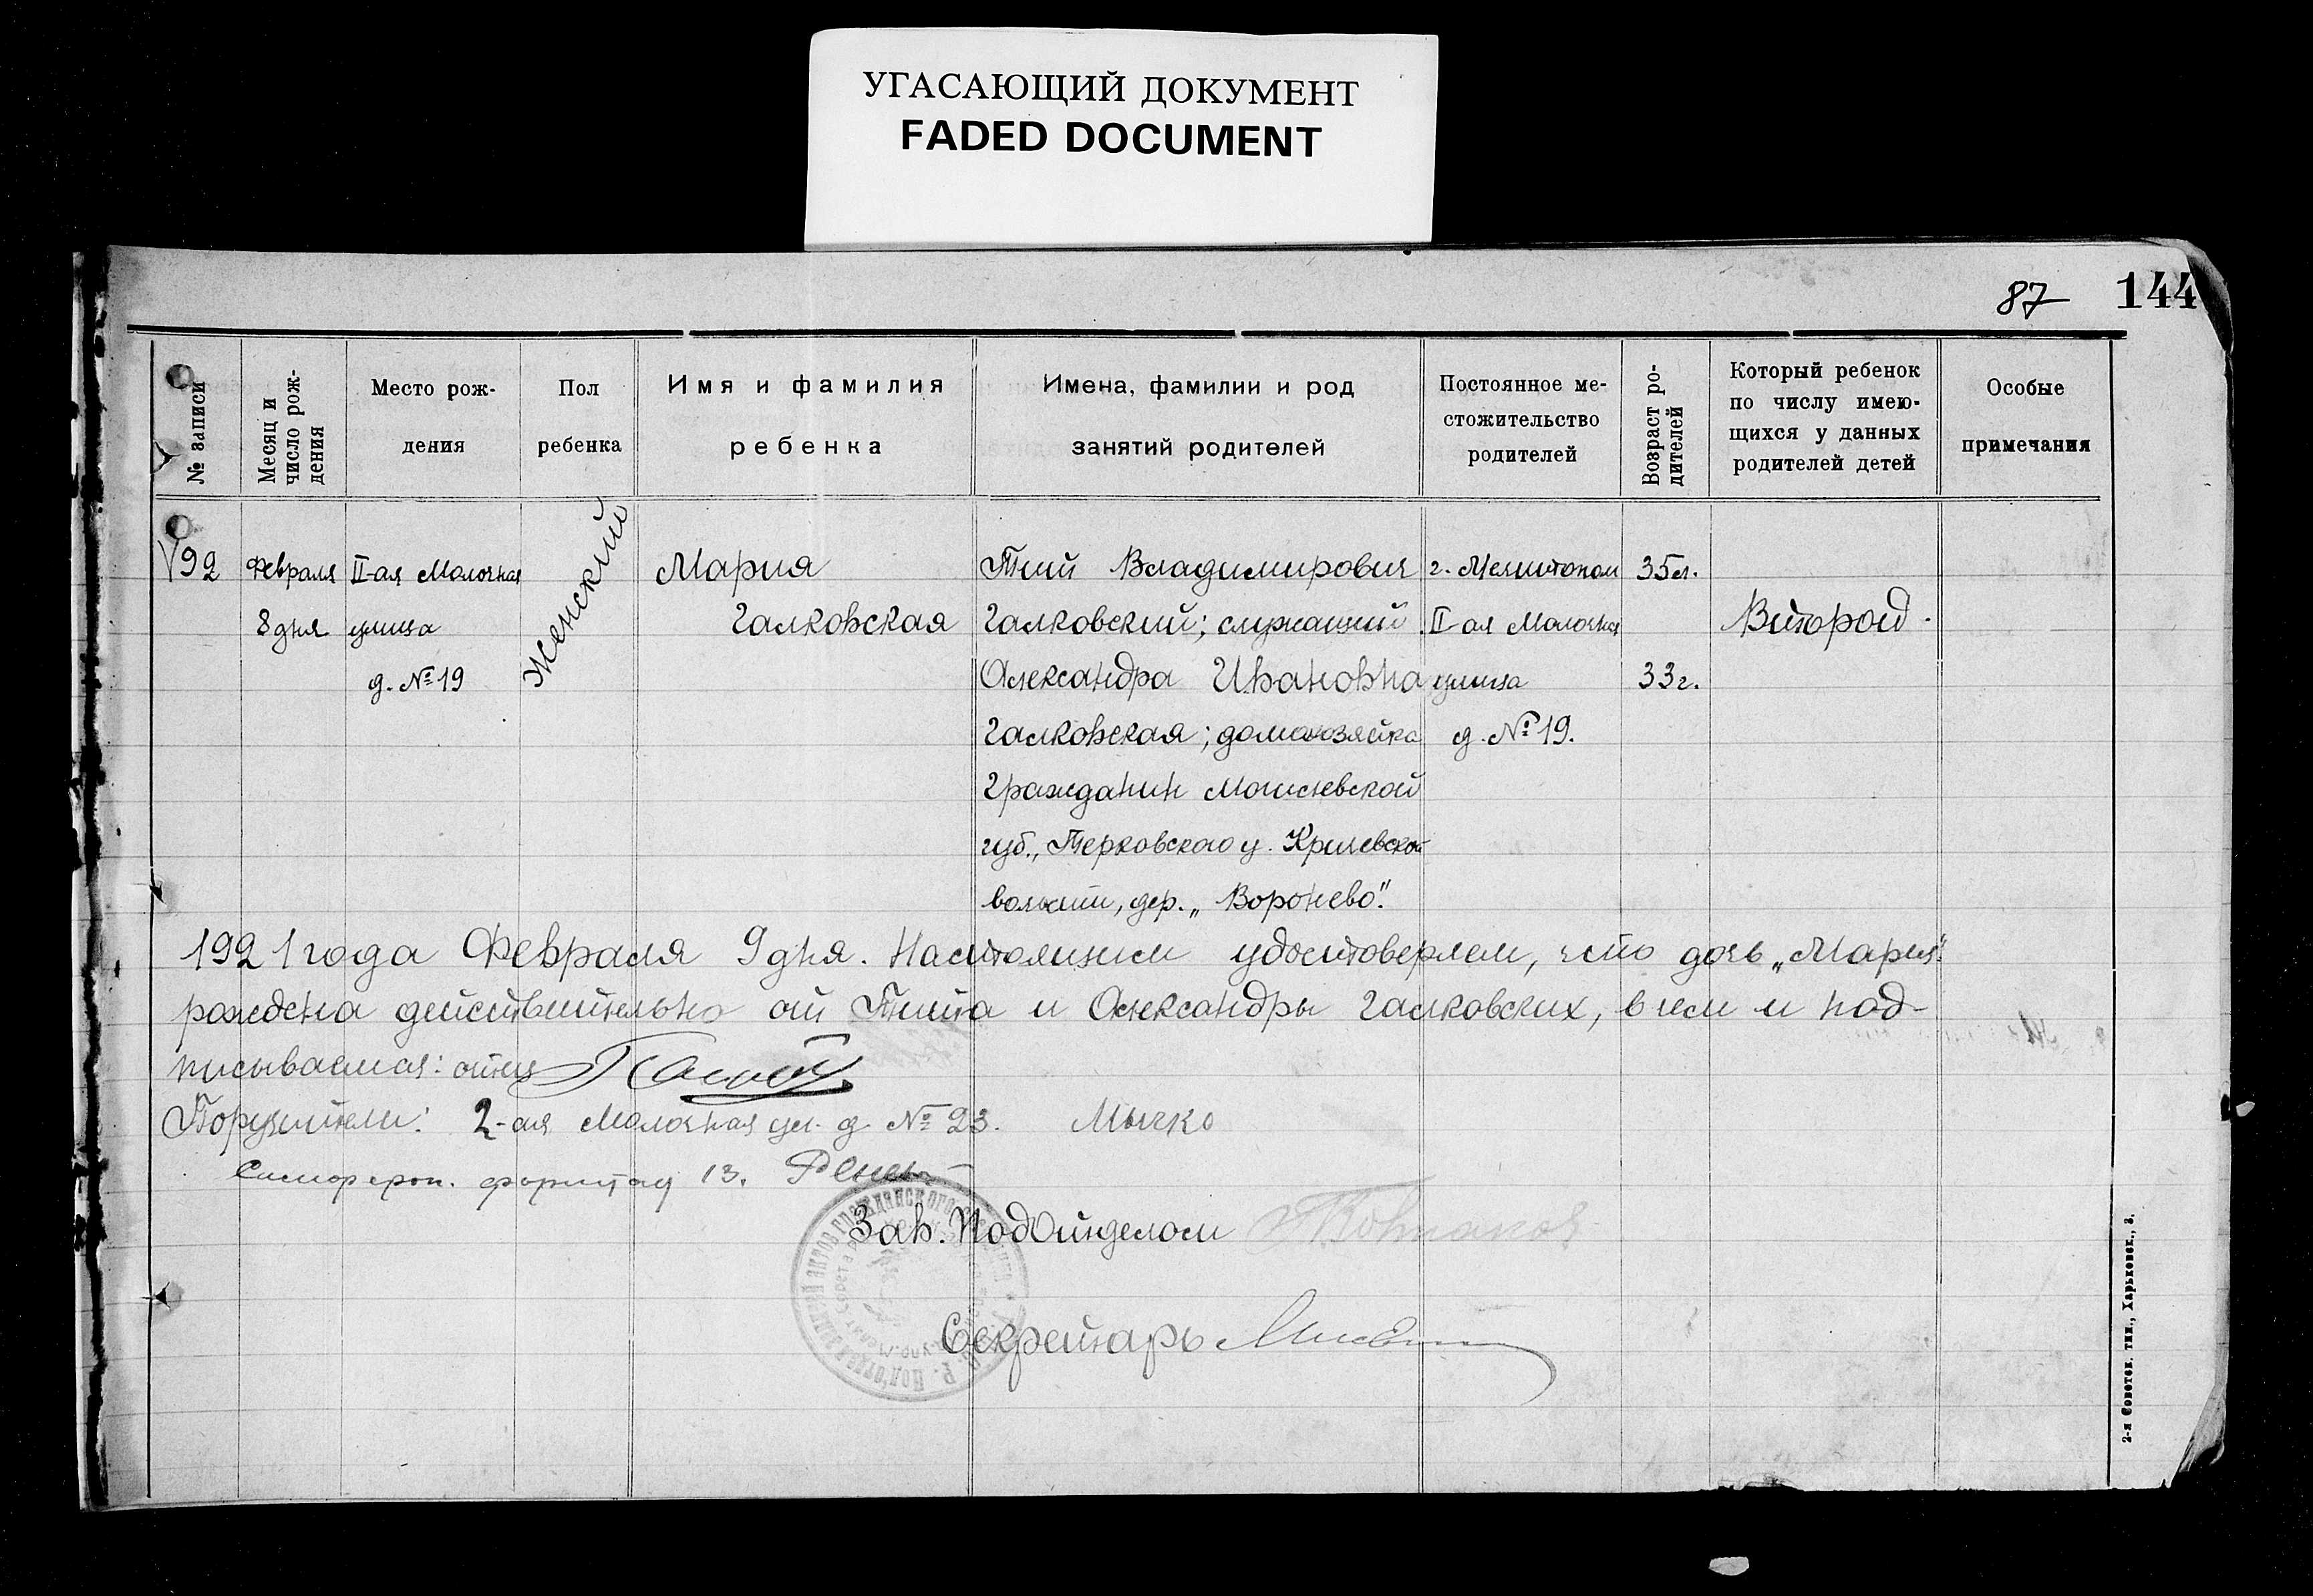 УГАСАЮЩИЙ ДОКУМЕНТ
FADED DOCUMENT
87 144
№ записи
Месяц и
число рож-
дения
Место рож-
дения
Пол
ребенка
Имя и фамилия
ребенка
Имена, фамилии и род
занятий родителей
Постоянное ме-
стожительство
родителей
Возраст ро-
дителей
Который ребенок
по числу имею-
щихся у данных
родителей детей
Особые
примечания
92
Февраля
8 дня
II-ая Молочная
улица
д. № 19
Женский
Мария
Галковская
Тит Владимирович
Галковский; служащий
Александра Ивановна
Галковская; домохозяйка
Гражданин Могилевской
губ.,
волости, дер. „Воронево".
г. Мелитополь
II-ая Молочная
улица
д. № 19.
35 л.
33 г.
Второй.
1921 года Февраля 9 дня. Настоящим удостоверяем, что дочь „Мария"
рождена действительно от Тита и Александры Галковских, в чем и под-
писываемся: отец
Поручители: 2-ая Молочная ул. д. № 23. Мычко
13.
Зав. ПодОтделом
Секретарь
2-я Советск. тип., Харьковск., 3.